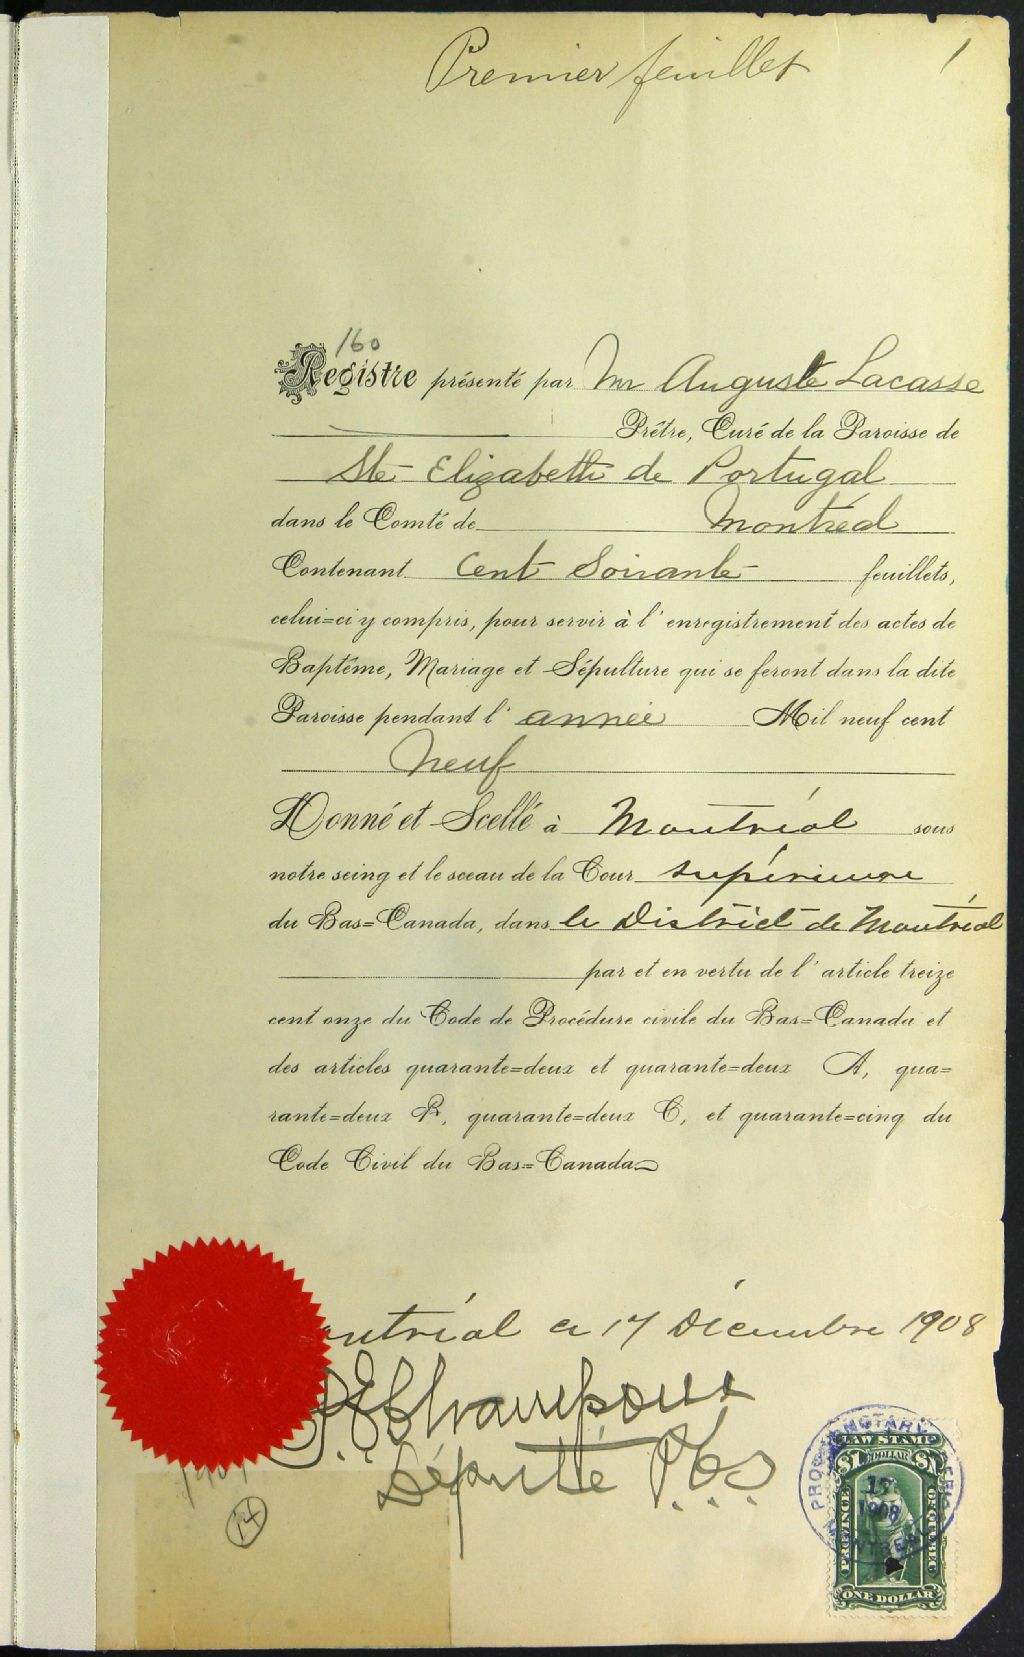 Premier feuillet 1
160
Registre présenté par Mr Auguste Lacasse
Prêtre, Curé de la Paroisse de
Ste Elizabeth de Portugal
dans le Comté de Montréal
Contenant Cent Soixante feuillets,
celui=ci y compris, pour servir à l'enregistrement des actes de
Baptême, Mariage et Sépulture qui se feront dans la dite
Paroisse pendant l'année Mil neuf cent
Neuf
Donné et Scellé à Montréal sous
notre seing et le sceau de la Cour supérieure
du Bas=Canada, dans le District de Montréal
par et en vertu de l'article treize
cent onze du Code de Procédure civile du Bas=Canada et
des articles quarante=deux et quarante=deux A, qua=
rante=deux B, quarante=deux C, et quarante=cinq du
Code Civil du Bas=Canada
ontréal ce 17 Décembre 1908
Député P.C.S.
14
LAW STAMP
$1 DOLLAR $1
PROVINCE OF QUEBEC
1908
MONTREAL
ONE DOLLAR